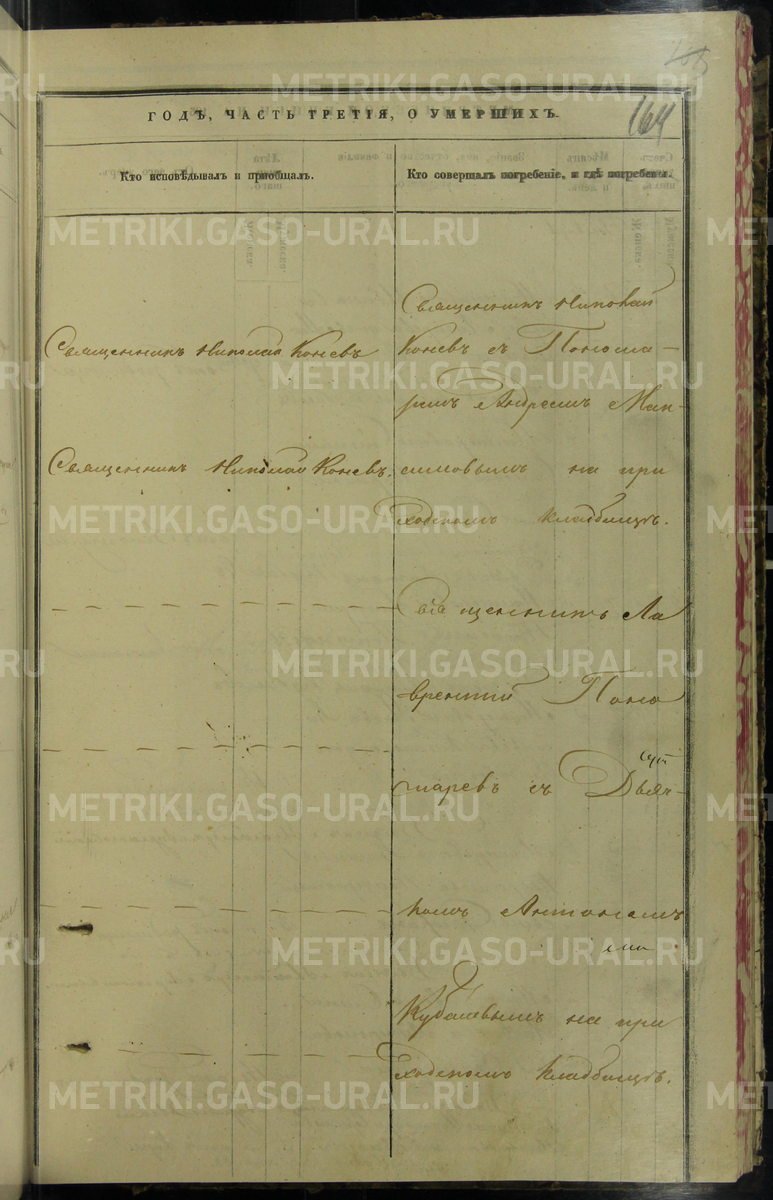 164
ГОДЪ, ЧАСТЬ ТРЕТІЯ, О УМЕРШИХЪ.
Кто исповѣдывалъ и приобщалъ.
Кто совершалъ погребеніе, и гдѣ погребены.
Священникъ Николай Коневъ
Священникъ Николай Коневъ.
Священникъ Николай
Коневъ съ Понома-
ремъ Андреемъ Мак-
симовымъ на при
ходскомъ кладбищѣ.
Священникъ Ла
врентій Поно
маревъ съ Дьяч-
комъ Антоніемъ
Кубасевымъ на при
ходскомъ кладбищѣ.
METRIKI.GASO-URAL.RU